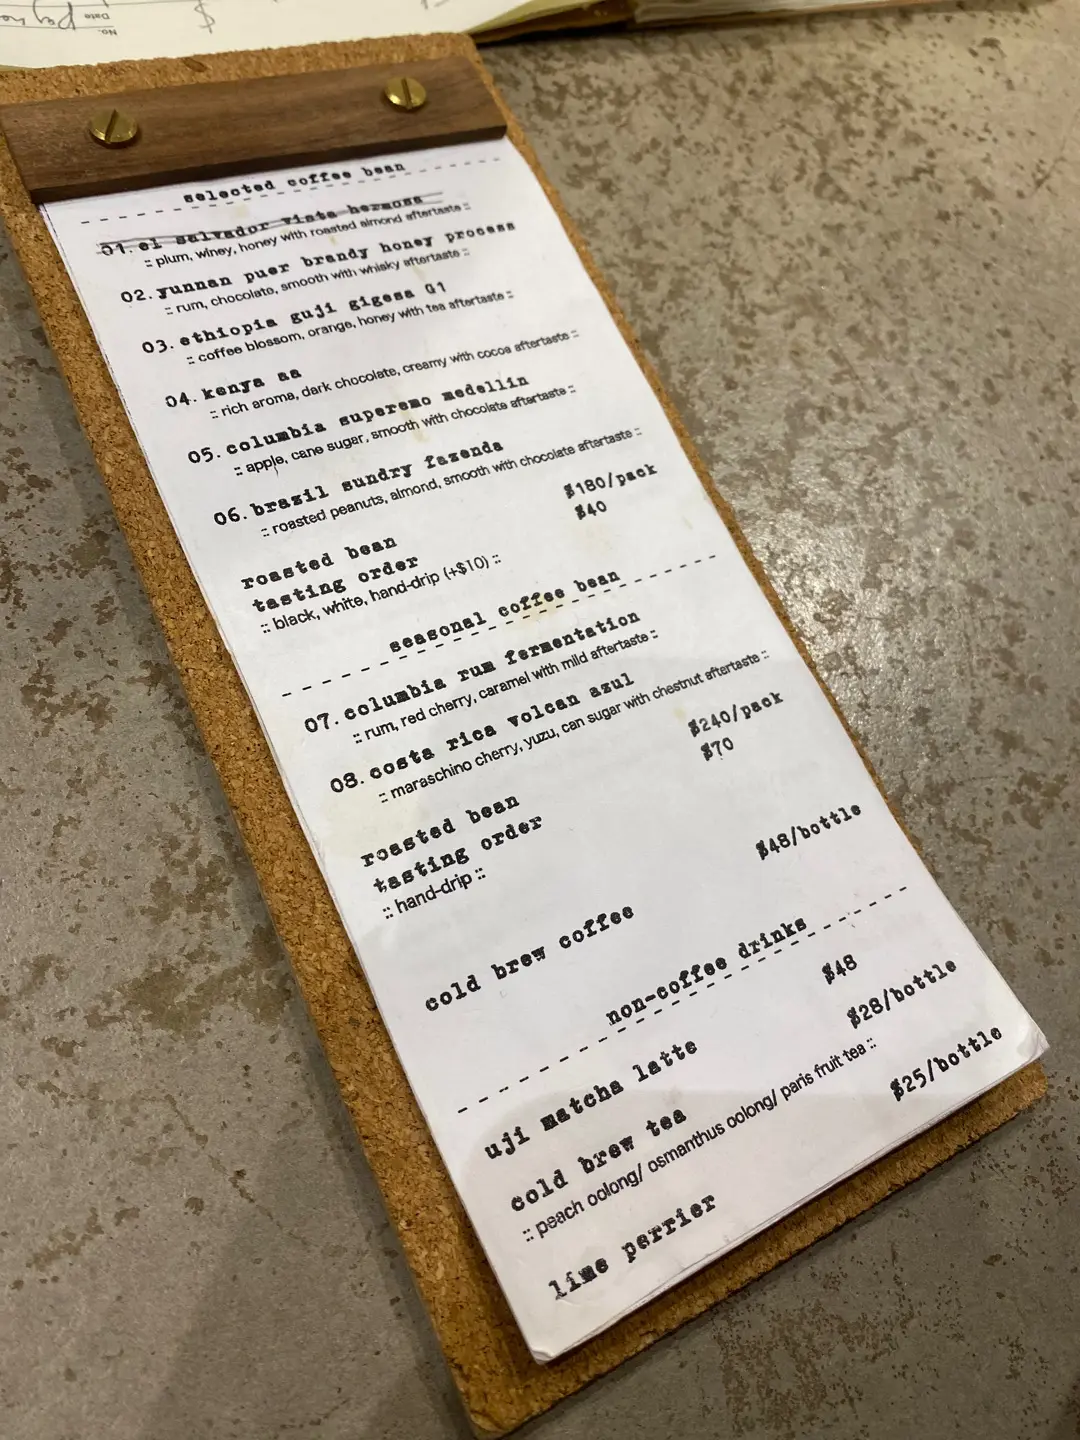 No.
Date
$
selected coffee bean
01. el salvador vista hermosa
:: plum, winey, honey with roasted almond aftertaste ::
02. yunnan puer brandy honey process
:: rum, chocolate, smooth with whisky aftertaste ::
03. ethiopia guji gigesa G1
:: coffee blossom, orange, honey with tea aftertaste ::
04. kenya aa
:: rich aroma, dark chocolate, creamy with cocoa aftertaste ::
05. columbia superemo medellin
:: apple, cane sugar, smooth with chocolate aftertaste ::
06. brazil sundry fazenda
:: roasted peanuts, almond, smooth with chocolate aftertaste ::
roasted bean $180/pack
tasting order $40
:: black, white, hand-drip (+$10) ::
seasonal coffee bean
07. columbia rum fermentation
:: rum, red cherry, caramel with mild aftertaste ::
08. costa rica volcan azul
:: maraschino cherry, yuzu, can sugar with chestnut aftertaste ::
roasted bean $240/pack
tasting order $70
:: hand-drip ::
cold brew coffee $48/bottle
non-coffee drinks
uji matcha latte $48
cold brew tea $28/bottle
:: peach oolong/ osmanthus oolong/ paris fruit tea ::
lime perrier $25/bottle